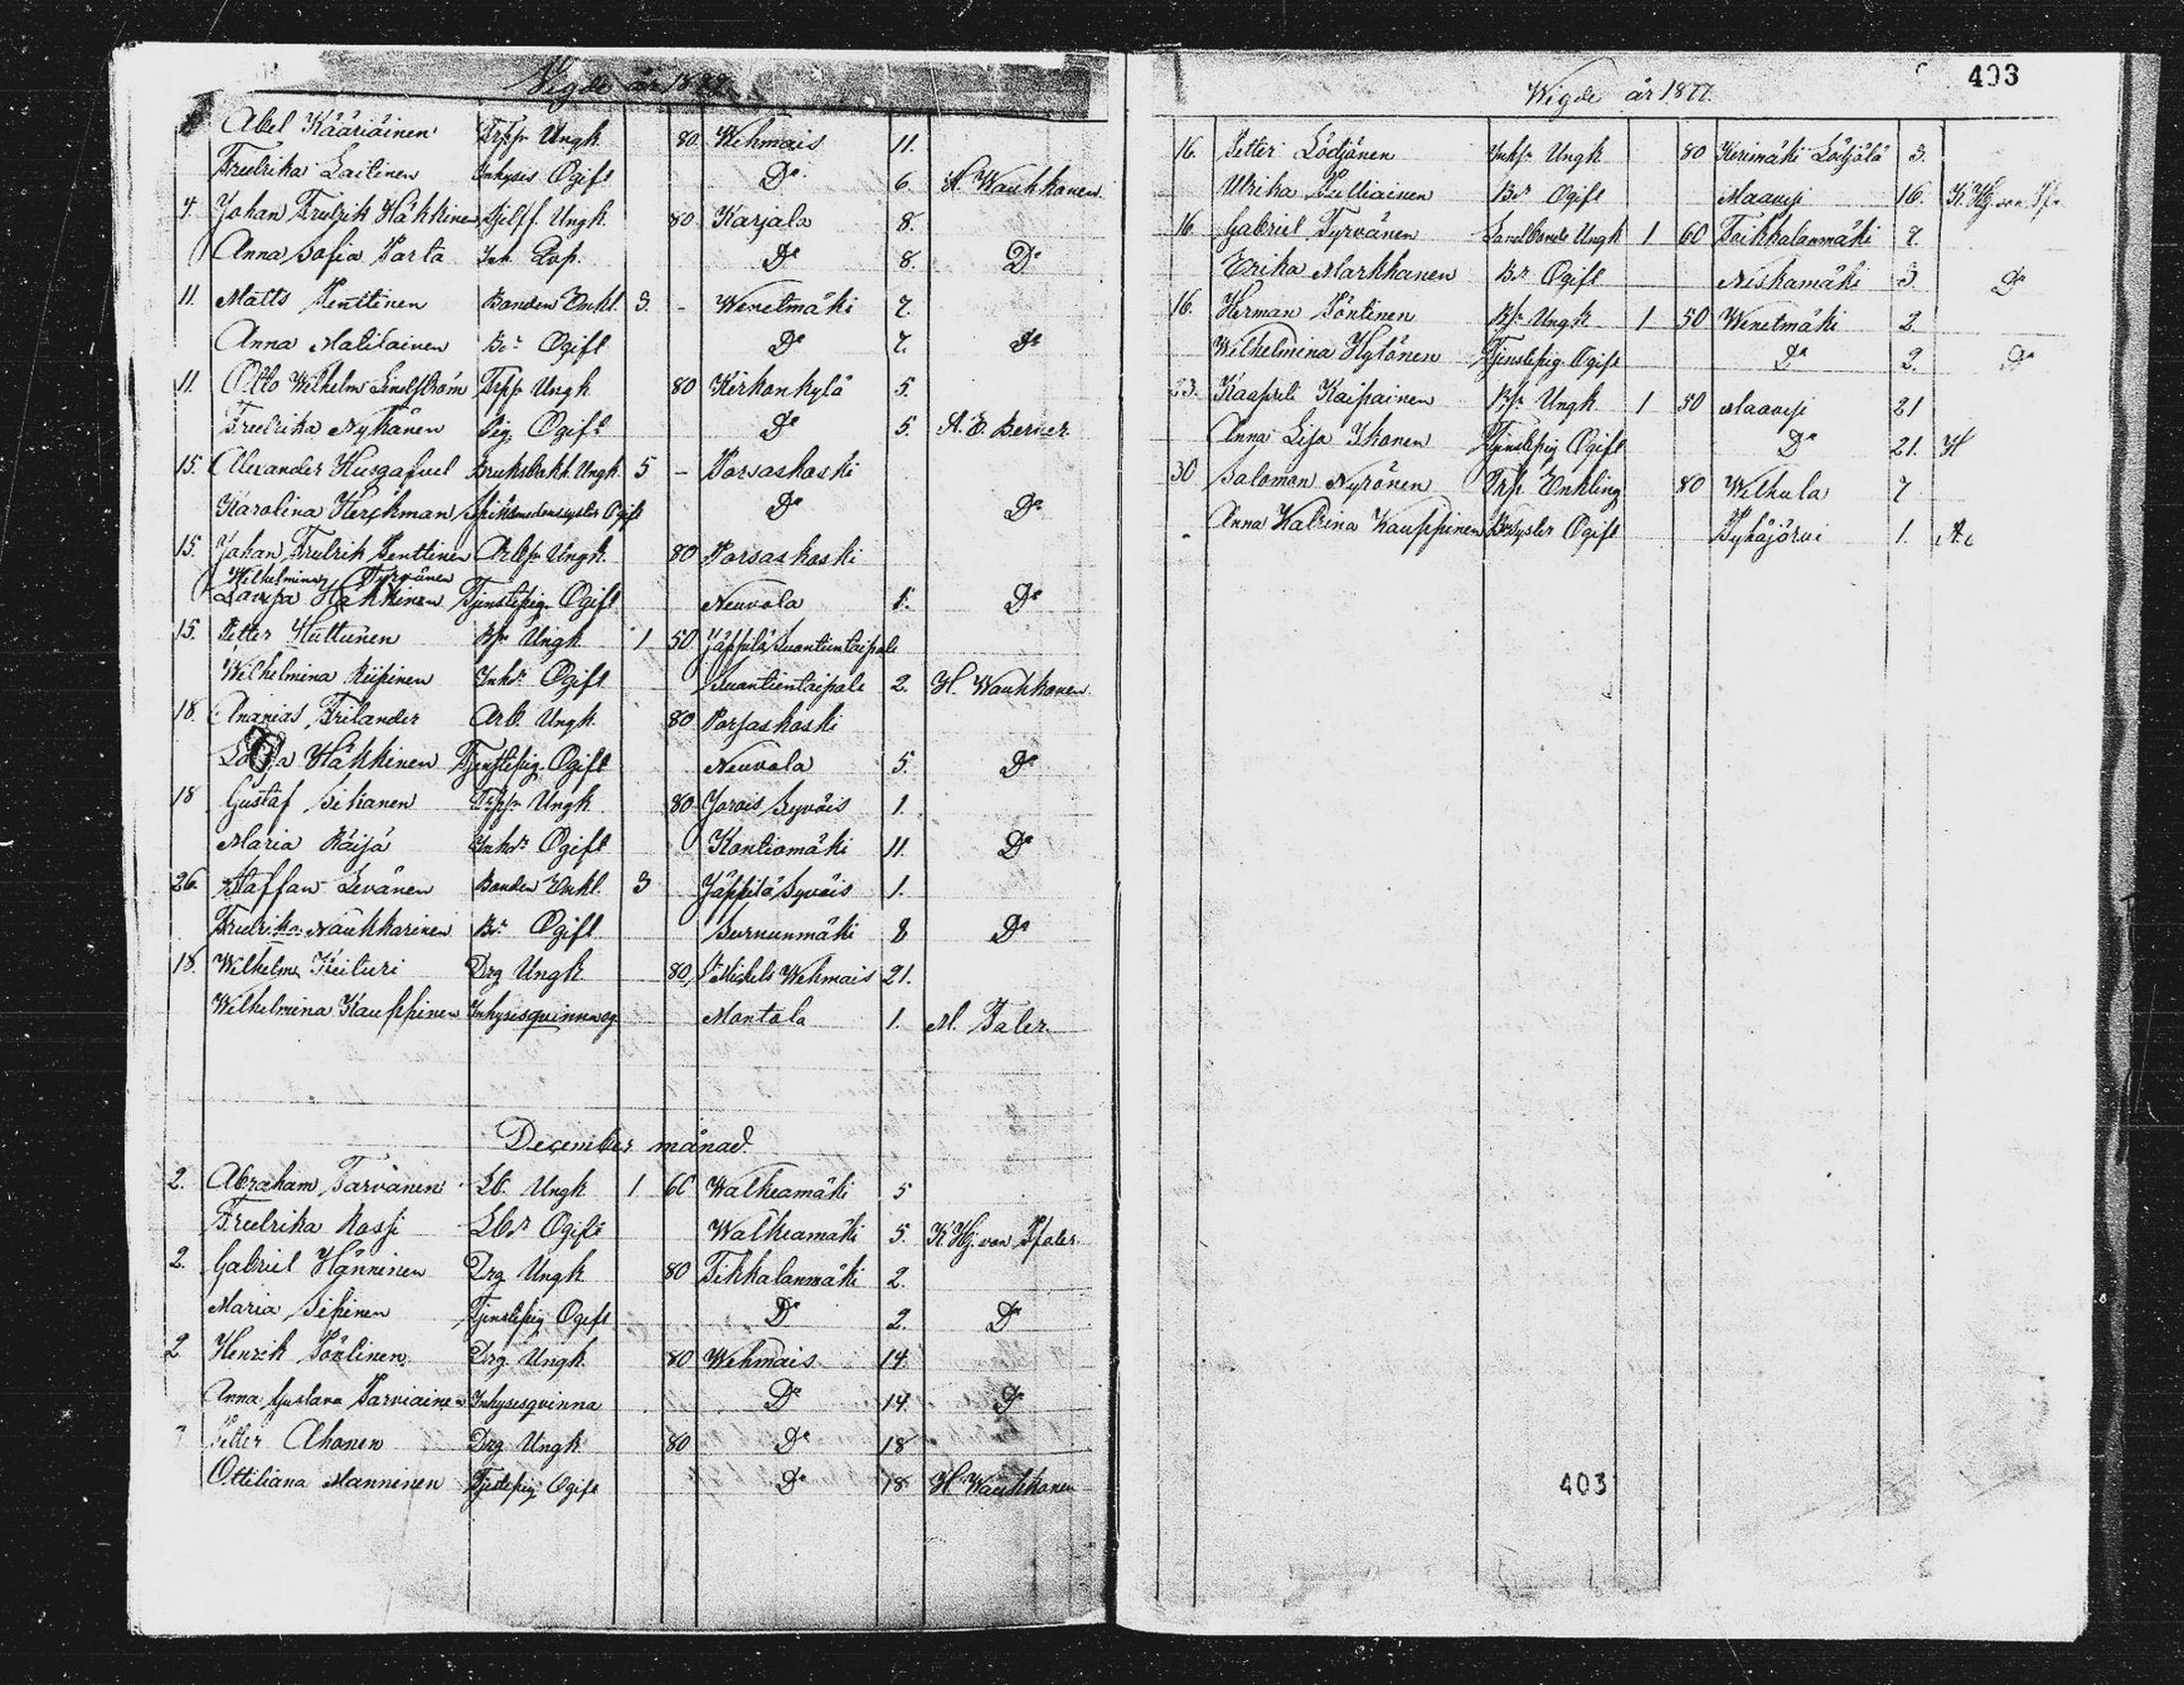 Vigde år 1877.
Abel Kääriäinen Trpp. Ungk. 80 Wehmais 11.
Fredrika Laitinen Inhyses Ogift Do 6. A. Wauhkonen
4. Johan Fredrik Häkkinen Sjelff. Ungk. 80 Karjala 8.
Anna Sofia Parta Do 8. Do
11. Matts Penttinen Bonden Enkl. 3. - Wenetmäki 7.
Anna Matilainen Bdr Ogift Do 7. Do
11. Otto Wilhelm Lindström Trpp. Ungk. 80 Kirkonkylä 5.
Fredrika Nykänen Pig. Ogift Do 5. A. E. Berner.
15. Alexander Husgafvel Bruksbokh. Ungk. 5 - Porsaskoski
Karolina Herckman Ogift Do Do
15. Johan Fredrik Penttinen Ungk. 80 Porsaskoski
Wilhelmina Tyrvänen
Lovisa Häkkinen Tjenstepig. Ogift Neuvola 5. Do
15. Petter Huttunen Bs. Ungk. 1 50 Jäppilä Suontientaipale
Wilhelmina Riipinen Inhdr Ogift Suontientaipale 2. H. Wauhkonen
18. Ananias Frilander Arb. Ungk. 80 Porsaskoski
Häkkinen Tjenstepig. Ogift Neuvola 5. Do
18 Gustaf Sikanen Trpp. Ungk. 80 Jorois Syväis 1.
Maria Räisä Inhdr Ogift Kontiomäki 11. Do
26. Staffan Levänen Bonden Enkl. 3 Jäppilä Syväis 1.
Fredrika Naukkarinen Bdr Ogift Surnunmäki 8 Do
18. Wilhelm Keituri Drg Ungk. 80 St Michels Wehmais 21.
Wilhelmina Kauppinen Inhysesqvinna og. Montola 1. M. Faler.
December månad.
2. Abraham Tarvänen Lb. Ungk 1 60 Walkeamäki 5
Fredrika Rossi Lbdr Ogift Walkeamäki 5. K. Hj. von Pfaler.
2. Gabriel Hänninen Drg Ungk 80 Tikkalanmäki 2.
Maria Sipinen Tjenstepig Ogift Do 2. Do
2 Henrik Pöntinen Drg. Ungk. 80 Wehmais 14.
Anna Gustava Parviainen Inhysesqvinna Do 14. Do
Petter Ahonen Drg Ungk 80 Do 18
Ottiliana Manninen Tjstepig Ogift Do 18 H Wauhkonen
403
Wigde år 1877.
16. Petter Lödjönen Ungk 80 Kerimäki Lödjölä 3.
Ulrika Pulliainen Bdr Ogift Maavesi 16. K. Hj. von Pf.
16. Gabriel Tyrvänen Landbonde Ungk 1 60 Toikkalanmäki 7.
Erika Markkanen Bdr Ogift Niskamäki 3. Do
16. Herman Pöntinen Bs. Ungk 1 50 Wenetmäki 2
Wilhelmina Hytönen Tjenstepig Ogift Do 2. Do
23. Kaapreli Kaipainen Bs. Ungk 1 50 Maavesi 21
Anna Lisa Ikonen Tjenstepig Ogift Do 21. H
30 Salomon Nyrönen Trp. Enkling 80 Welhula 7
Anna Katrina Kauppinen Bs Syster Ogift Pyhäjärvi 1. A.
403